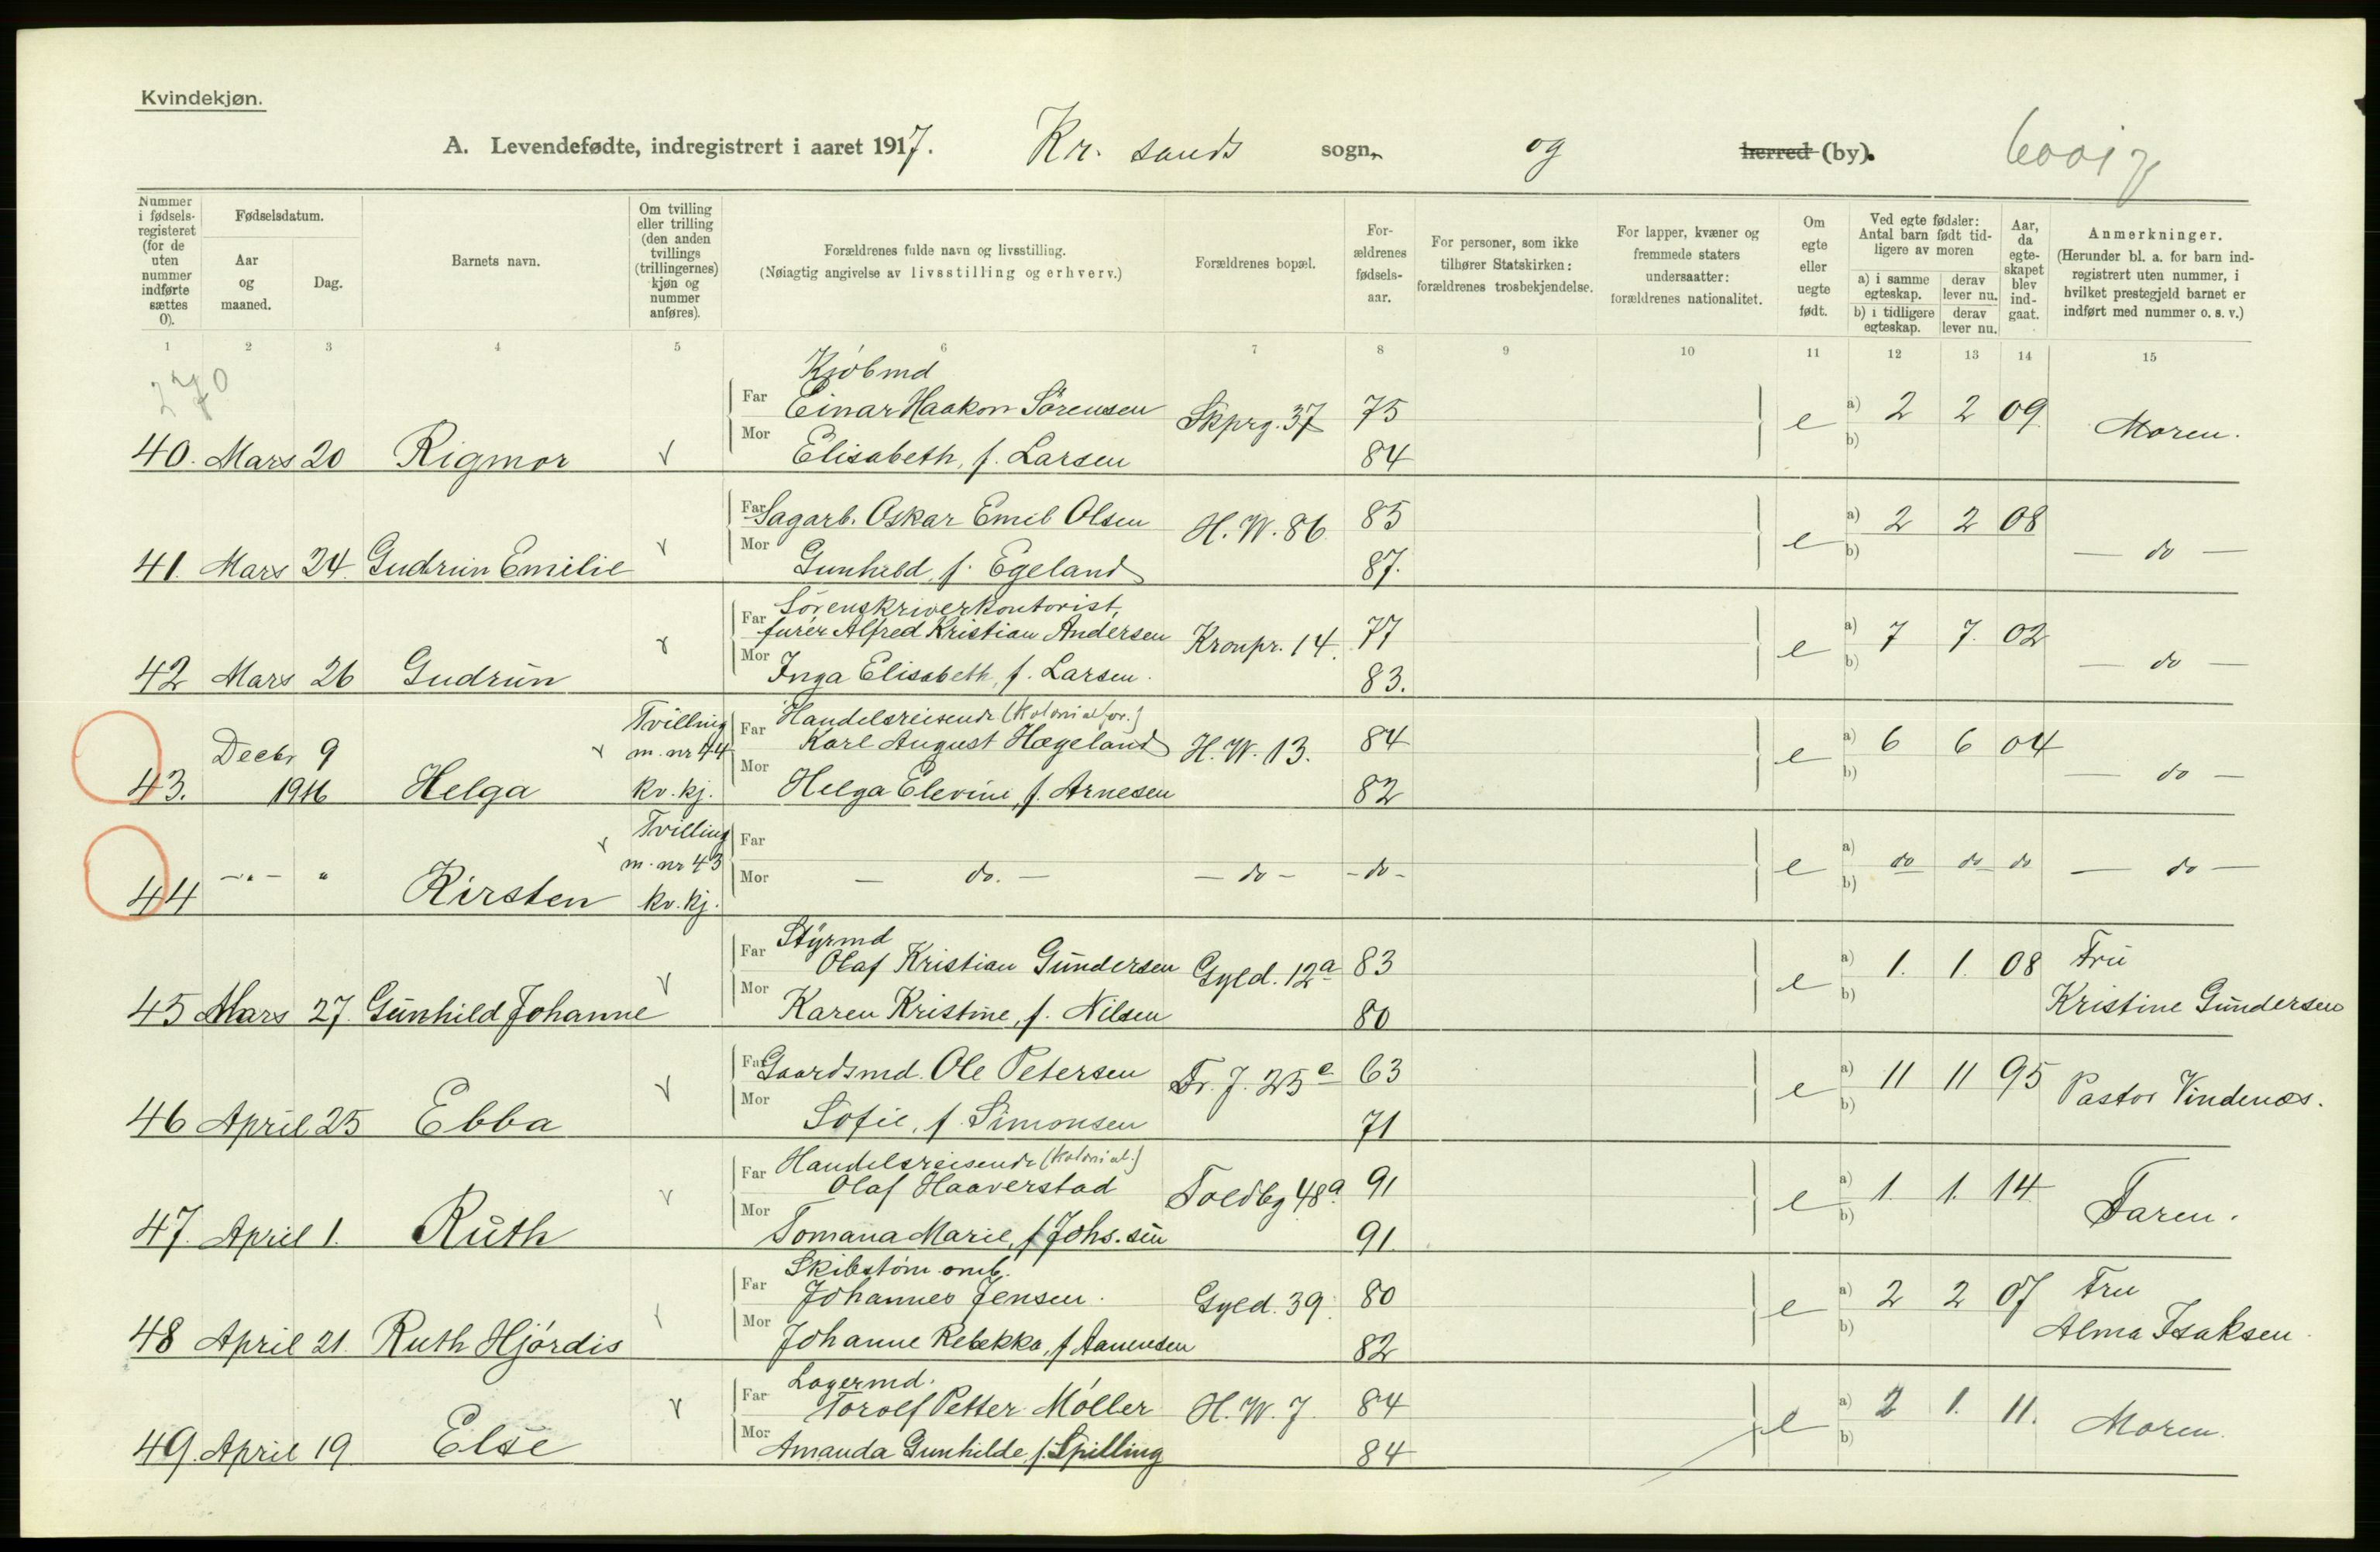 Kvindekjøn.
A. Levendefødte, indregistrert i aaret 1917. Kr. sands sogn, og herred (by).
Nummer i fødselsregisteret (for de uten nummer indførte sættes 0).
Fødselsdatum.
Aar og maaned.
Dag.
Barnets navn.
Om tvilling eller trilling (den anden tvillings (trillingernes) kjøn og nummer anføres).
Forældrenes fulde navn og livsstilling.
(Nøiagtig angivelse av livsstilling og erhverv.)
Forældrenes bopæl.
Forældrenes fødselsaar.
For personer, som ikke tilhører Statskirken: forældrenes trosbekjendelse.
For lapper, kvæner og fremmede staters undersaatter: forældrenes nationalitet.
Om egte eller uegte født.
Ved egte fødsler: Antal barn født tidligere av moren
a) i samme egteskap. derav lever nu.
b) i tidligere egteskap. derav lever nu.
Aar, da egteskapet blev indgaat.
Anmerkninger.
(Herunder bl. a. for barn indregistrert uten nummer, i hvilket prestegjeld barnet er indført med nummer o. s. v.)
1 2 3 4 5 6 7 8 9 10 11 12 13 14 15
270
Kjøbmd
Far Einar Haakon Sørensen Skprg. 37 75 e a) 2 2 09 Moren.
40. Mars 20 Rigmor Mor Elisabeth, f. Larsen 84 b)
Far Sagarb. Oskar Emil Olsen H. W. 86 85 e a) 2 2 08
41. Mars 24. Gudrun Emilie Mor Gunhild, f. Egeland 87. b) — do —
Sørenskriverkontorist,
Far furér Alfred Kristian Andersen Kronpr. 14. 77 e a) 7 7. 02
42 Mars 26 Gudrun Mor Inga Elisabeth, f. Larsen. 83. b) — do —
Tvilling Handelsreisende (Kolonialfor.)
Decbr 9 m. nr 44 Far Karl August Hægeland H. W. 13. 84 e a) 6 6 04
43. 1916 Helga kv. kj. Mor Helga Elevine, f. Arnesen 82 b) — do —
Tvilling Far
m. nr 43
44 —"— " Kirsten kv. kj. Mor — do. — — do — - do - e a) do do do b) — do —
Styrmd
Far Olaf Kristian Gundersen Gyld. 12a 83 e a) 1. 1. 08 Fru
45 Mars 27. Gunhild Johanne Mor Karen Kristine, f. Nilsen 80 b) Kristine Gundersen
Far Gaardsmd. Ole Petersen Fr. J. 25e 63 e a) 11 11 95 Pastor Vindenæs.
46 April 25 Ebba Mor Sofie, f. Simonsen 71 b)
Handelsreisende (Kolonial.)
Far Olaf Haaverstad Toldbg 48a. 91 e a) 1. 1. 14 Faren.
47. April 1. Ruth Mor Tomana Marie, f. Johs.sen 91. b)
Skibstøm. omb.
Far Johannes Jensen. Gyld. 39. 80 e a) 2 2 07 Fru
48 April 21. Ruth Hjørdis Mor Johanne Rebekka, f Aanensen 82 b) Alma Isaksen.
Lagermd.
Far Torolf Petter Møller H. W. 7. 84 e a) 2 1. 11. Moren.
49. April 19 Else Mor Amanda Gunhilde, f. Spilling 84 b)